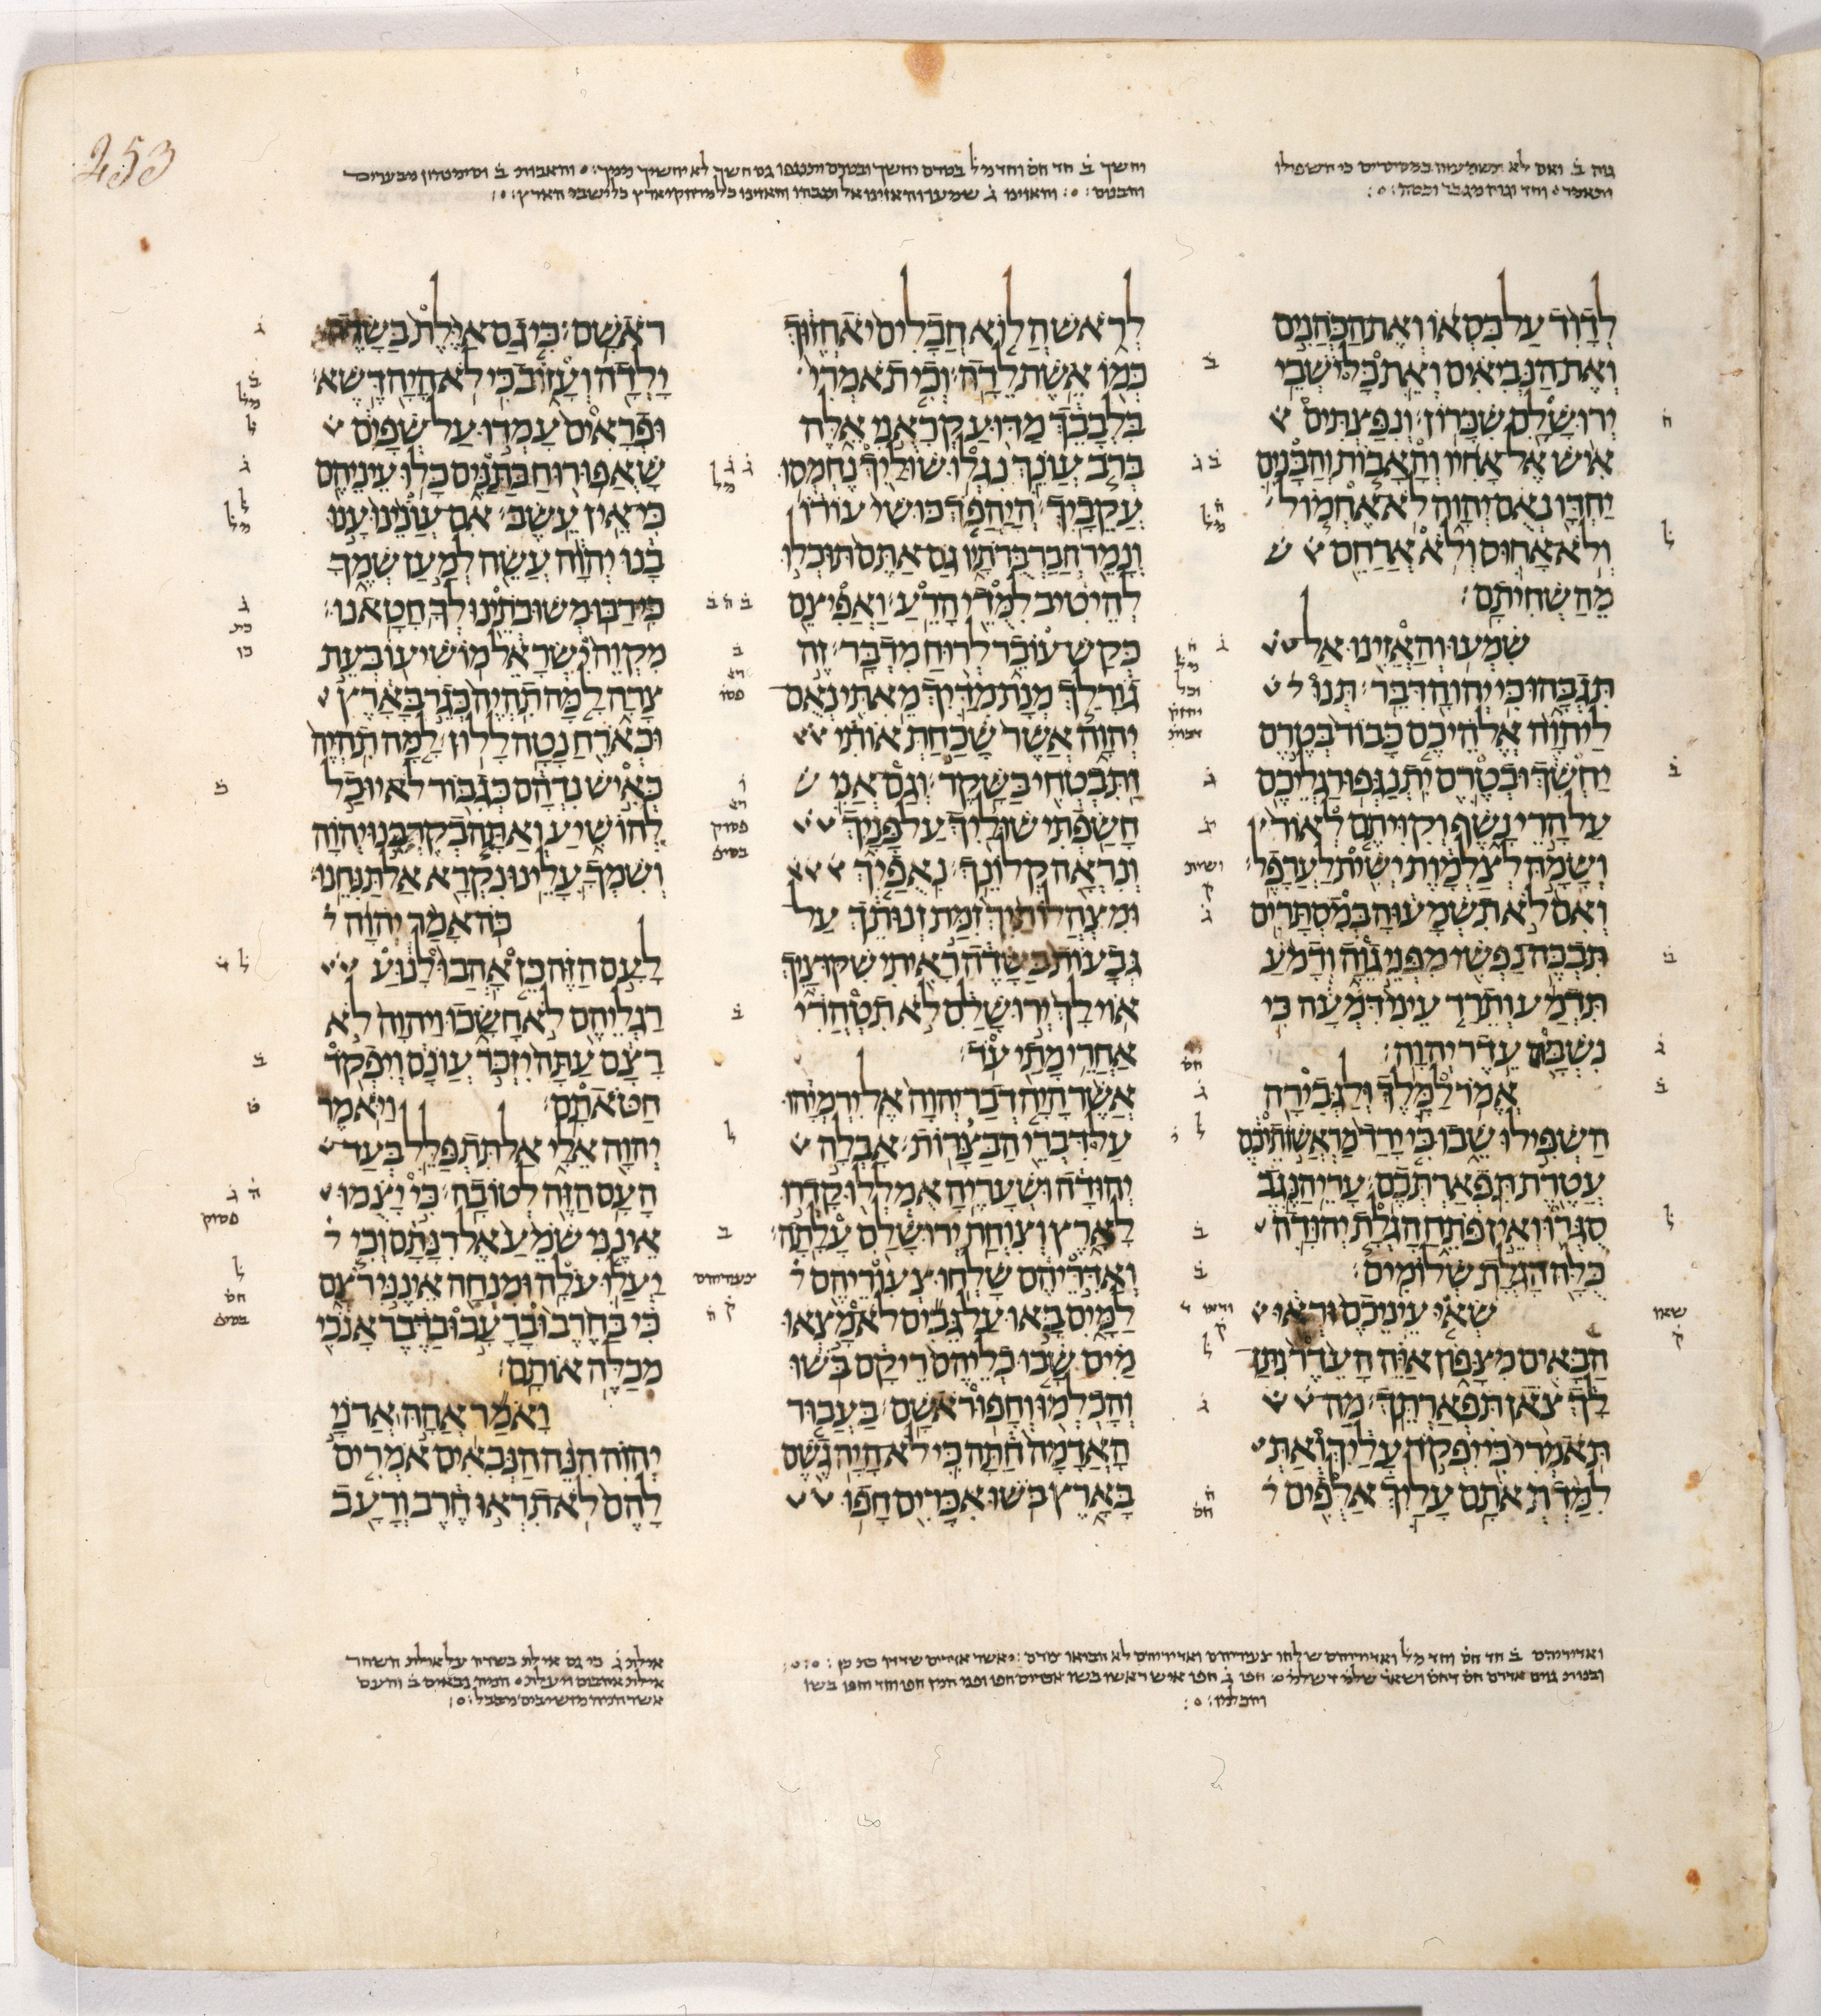 גוה ב ואם לא תשמעוה במסתרים כי השפילו
ותאמר וחד וגוה מגבר יכסה
יחשך ב חד חס וחד מל בטרם יחשך ובטרם יתנגפו גם חשך לא יחשיך ממך והאבות ב
והבנים והאזינו ג שמעו והאזינו אל תגבהו והאזינו כל מרחקי ארץ כל ישבי הארץ
לדוד על כסאו ואת הכהנים
ואת הנביאים ואת כל ישבי
ירושלם שכרון׃ ונפצתים
איש אל אחיו והאבות והבנים
יחדו נאם יהוה לא אחמול
ולא אחוס ולא ארחם
מהשחיתם׃
שמעו והאזינו אל
תגבהו כי יהוה דבר׃ תנו
ליהוה אלהיכם כבוד בטרם
יחשך ובטרם יתנגפו רגליכם
על הרי נשף וקויתם לאור
ושמה לצלמות ישית לערפל׃
ואם לא תשמעוה במסתרים
תבכה נפשי מפני גוה ודמע
תדמע ותרד עיני דמעה כי
נשבה עדר יהוה׃
אמר למלך ולגבירה
השפילו שבו כי ירד מראשותיכם
עטרת תפארתכם׃ ערי הנגב
סגרו ואין פתח הגלת יהודה
כלה הגלת שלומים׃
שאי עיניכם וראי
הבאים מצפון איה העדר נתן
לך צאן תפארתך׃ מה
תאמרי כי יפקד עליך ואת
למדת אתם עליך אלפים
לראש הלוא חבלים יאחזוך
כמו אשת לדה׃ וכי תאמרי
בלבבך מדוע קראני אלה
ברב עונך נגלו שוליך נחמסו
עקביך׃ היהפך כושי עורו
ונמר חברברתיו גם אתם תוכלו
להיטיב למדי הרע׃ ואפיצם
כקש עובר לרוח מדבר׃ זה
גורלך מנת מדיך מאתי נאם
יהוה אשר שכחת אותי
ותבטחי בשקר׃ וגם אני
חשפתי שוליך על פניך
ונראה קלונך׃ נאפיך
ומצהלותיך זמת זנותך על
גבעות בשדה ראיתי שקוציך
אוי לך ירושלם לא תטהרי
אחרי מתי עד׃
אשר היה דבר יהוה אל ירמיהו
על דברי הבצרות׃ אבלה
יהודה ושעריה אמללו קדרו
לארץ וצוחת ירושלם עלתה׃
ואדריהם שלחו צעוריהם
למים באו על גבים לא מצאו
מים שבו כליהם ריקם בשו
והכלמו וחפו ראשם׃ בעבור
האדמה חתה כי לא היה גשם
בארץ בשו אכרים חפו
ראשם׃ כי גם אילת בשדה
ילדה ועזוב כי לא היה דשא׃
ופראים עמדו על שפים
שאפו רוח כתנים כלו עיניהם
כי אין עשב׃ אם עונינו ענו
בנו יהוה עשה למען שמך
כי רבו משובתינו לך חטאנו׃
מקוה ישראל מושיעו בעת
צרה למה תהיה כגר בארץ
וכארח נטה ללון׃ למה תהיה
כאיש נדהם כגבור לא יוכל
להושיע ואתה בקרבנו יהוה
ושמך עלינו נקרא אל תנחנו׃
כה אמר יהוה
לעם הזה כן אהבו לנוע
רגליהם לא חשכו ויהוה לא
רצם עתה יזכר עונם ויפקד
חטאתם׃ ויאמר
יהוה אלי אל תתפלל בעד
העם הזה לטובה׃ כי יצמו
אינני שמע אל רנתם וכי
יעלו עלה ומנחה אינני רצם
כי בחרב וברעב ובדבר אנכי
מכלה אותם׃
ואמר אהה אדני
יהוה הנה הנבאים אמרים
להם לא תראו חרב ורעב
ואדיריהם ב חד חס וחד מל ואדיריהם שלחו צעוריהם
אילת ג כי גם אילת בשדה על אילת השחר
אילת אהבים ויעלת
253